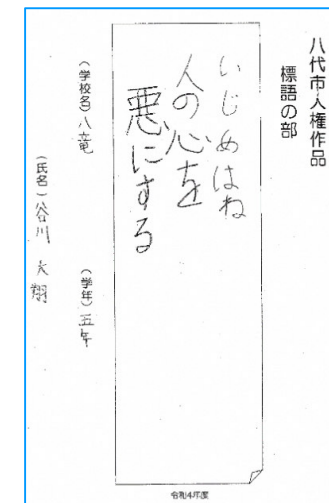 八代市人権作品
標語の部
いじめはね
人の心を
悪にする
(学校名)八竜
(学年)五年
(氏名)谷川 大翔
令和4年度